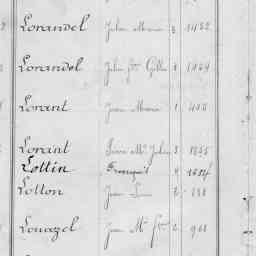 Lorandel Julien Marie 3 1452
Lorandel Julien fçois Gilles 1
Lorant Jean Marie 1
Lorant Pierre Me Julien 3 1855
Lottin François 4 1684
Lotton Jean Louis 2
Louazel Jean Me fçois 2 901